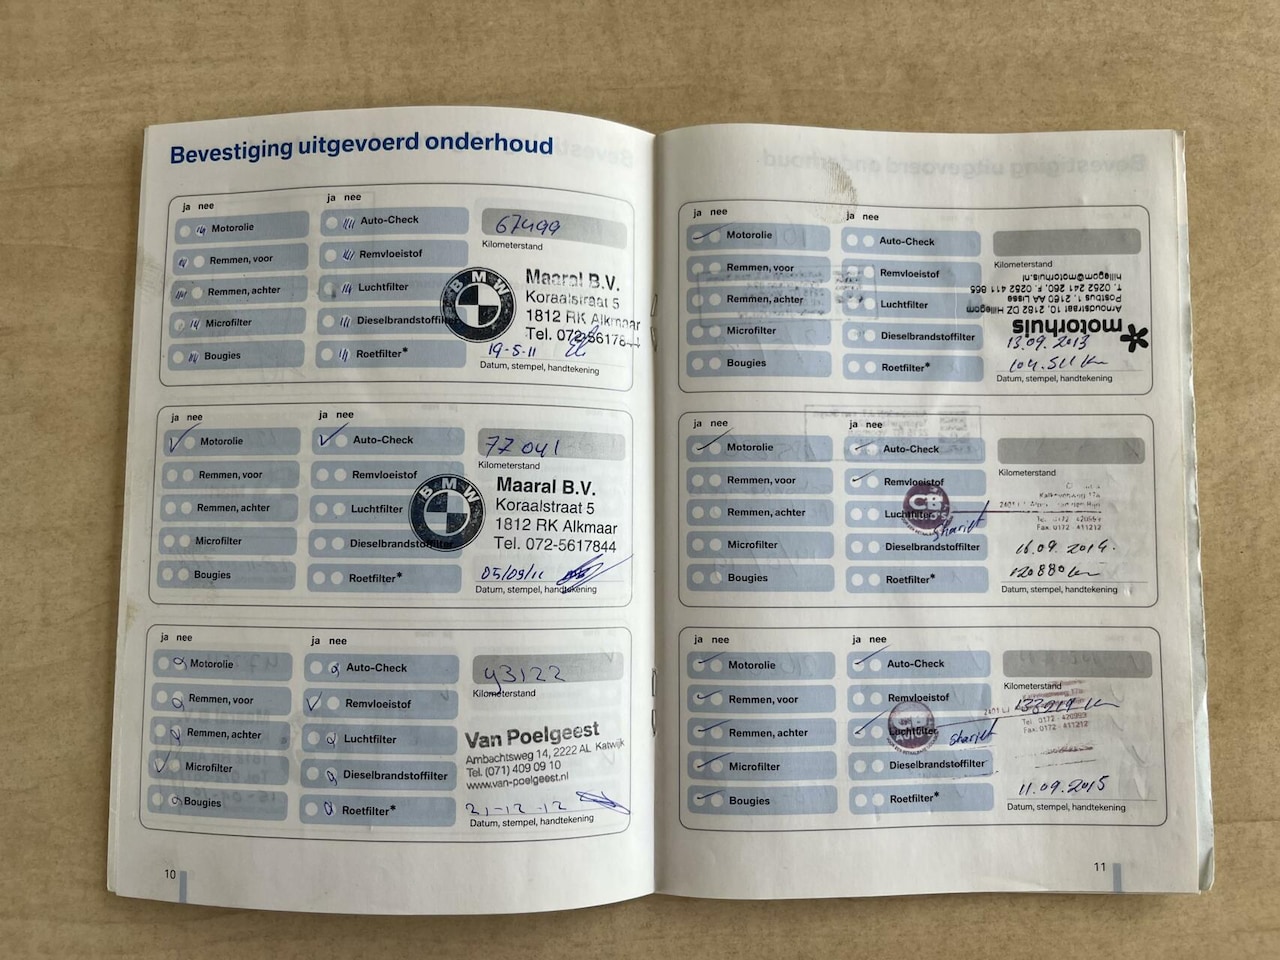 Bevestiging uitgevoerd onderhoud
ja nee
ja nee
Motorolie
Auto-Check
67499
Kilometerstand
Remmen, voor
Remvloeistof
Remmen, achter
Luchtfilter
Microfilter
Dieselbrandstoffilter
Bougies
Roetfilter*
BMW
Maaral B.V.
Koraalstraat 5
1812 RK Alkmaar
Tel. 072-5617844
19-5-11
Datum, stempel, handtekening
ja nee
ja nee
Motorolie
Auto-Check
77041
Kilometerstand
Remmen, voor
Remvloeistof
Remmen, achter
Luchtfilter
Microfilter
Dieselbrandstoffilter
Bougies
Roetfilter*
BMW
Maaral B.V.
Koraalstraat 5
1812 RK Alkmaar
Tel. 072-5617844
05/09/11
Datum, stempel, handtekening
ja nee
ja nee
Motorolie
Auto-Check
93122
Kilometerstand
Remmen, voor
Remvloeistof
Remmen, achter
Luchtfilter
Microfilter
Dieselbrandstoffilter
Bougies
Roetfilter*
Van Poelgeest
Ambachtsweg 14, 2222 AL Katwijk
Tel. (071) 409 09 10
www.van-poelgeest.nl
21-12-12
Datum, stempel, handtekening
10
ja nee
ja nee
Motorolie
Auto-Check
Kilometerstand
Remmen, voor
Remvloeistof
Remmen, achter
Luchtfilter
Microfilter
Dieselbrandstoffilter
Bougies
Roetfilter*
motorhuis
Arnoudstraat 10, 2182 DZ Hillegom
Postbus 1, 2160 AA Lisse
T. 0252 241 260, F. 0252 411 865
hillegom@motorhuis.nl
13.09.2013
104.511 km
Datum, stempel, handtekening
ja nee
ja nee
Motorolie
Auto-Check
Kilometerstand
Remmen, voor
Remvloeistof
Remmen, achter
Luchtfilter
Microfilter
Dieselbrandstoffilter
Bougies
Roetfilter*
CB
Tel. 0172 - 420993
Fax. 0172 - 411212
16.09.2014.
120880 km
Datum, stempel, handtekening
ja nee
ja nee
Motorolie
Auto-Check
Kilometerstand
Remmen, voor
Remvloeistof
Remmen, achter
Luchtfilter
Microfilter
Dieselbrandstoffilter
Bougies
Roetfilter*
Tel. 0172 - 420993
Fax. 0172 - 411212
11.09.2015
Datum, stempel, handtekening
11